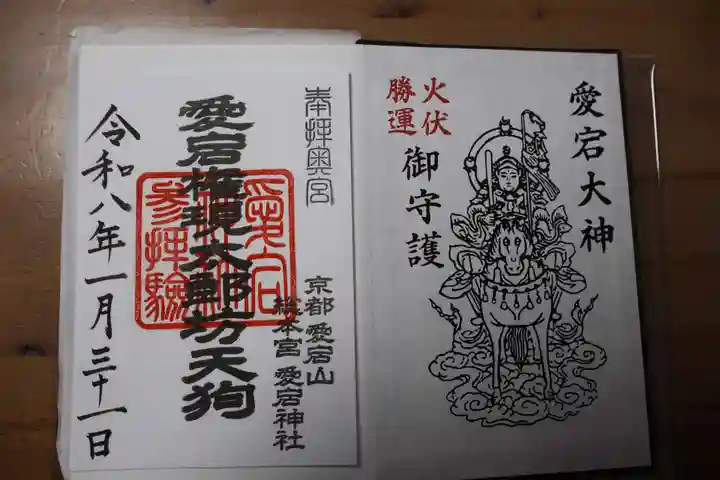 愛宕大神
火伏
勝運
御守護
奉拝奥宮
京都 愛宕山
総本宮 愛宕神社
愛宕権現太郎坊天狗
愛宕
参拝驗
令和八年一月三十一日